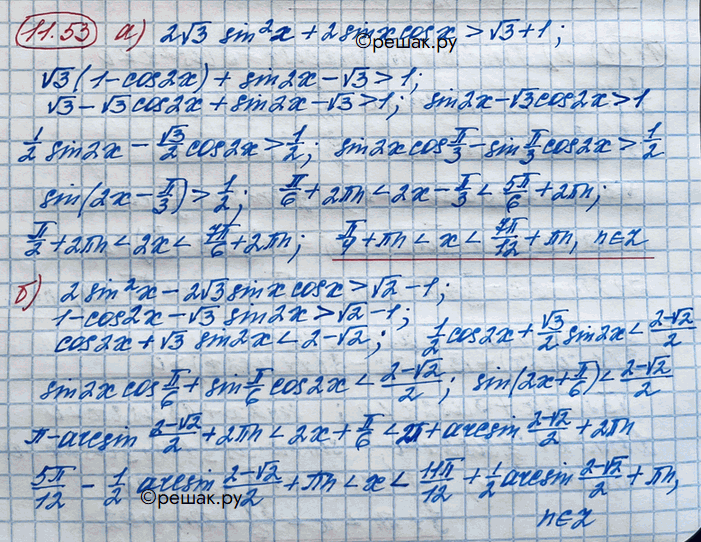 11.53 а) 2√3 sin²x + 2 sinx cosx > √3+1;
©решак.ру
√3(1-cos2x) + sin2x-√3>1;
√3-√3cos2x + sin2x-√3>1; sin2x-√3cos2x>1
1/2 sin2x - √3/2 cos2x > 1/2; sin2x cos π/3 - sin π/3 cos2x > 1/2
sin(2x-π/3) > 1/2; π/6 + 2πn < 2x - π/3 < 5π/6 + 2πn;
π/2 + 2πn < 2x < 7π/6 + 2πn; π/4 + πn < x < 7π/12 + πn, n∈Z
б) 2 sin²x - 2√3 sinx cosx > √2 - 1;
1-cos2x-√3 sin2x > √2-1;
cos2x+√3 sin2x < 2-√2; 1/2 cos2x + √3/2 sin2x < (2-√2)/2
sin2x cos π/6 + sin π/6 cos2x < (2-√2)/2; sin(2x+π/6) < (2-√2)/2
π-arcsin (2-√2)/2 + 2πn < 2x + π/6 < 2π + arcsin (2-√2)/2 + 2πn
5π/12 - 1/2 arcsin (2-√2)/2 + πn < x < 11π/12 + 1/2 arcsin (2-√2)/2 + πn,
©решак.ру
n∈Z